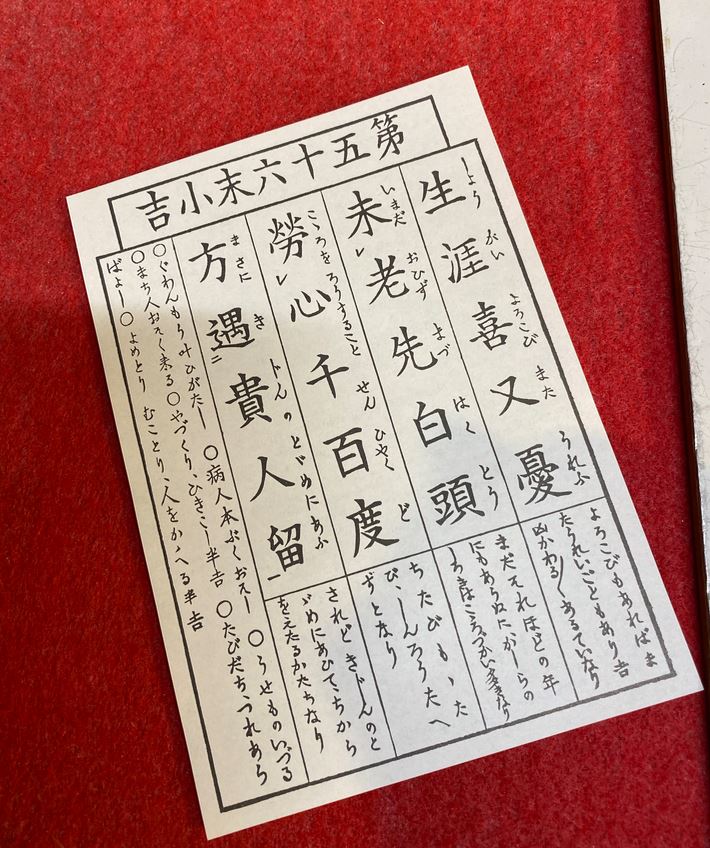 第五十六末小吉
生涯喜又憂
しよう がい よろこび また うれふ
よろこびもあればま
たうれいごともあり吉
凶かわる〲くあるていなり
未レ老先白頭
いまだ おひず まづ はく とう
まだそれほどの年
にもあらぬにかしらの
しろきはこころづかい多きなり
勞レ心千百度
こゝろをろうすること せん ひやく ど
ちたびもゝた
び、しんろうたへ
ずとなり
方遇二貴人留一
まさに き じんのとゞめにあふ
されど きじんのと
ゞめにあひてちから
をえたるかたちなり
〇ぐわんもり叶ひがたし 〇病人本ぶくおそし 〇うせものいづる
〇まち人おそく来る〇やづくり、ひきこし半吉 〇たびだち、つれあら
ばよし〇よめとり むことり、人をかゝへる半吉